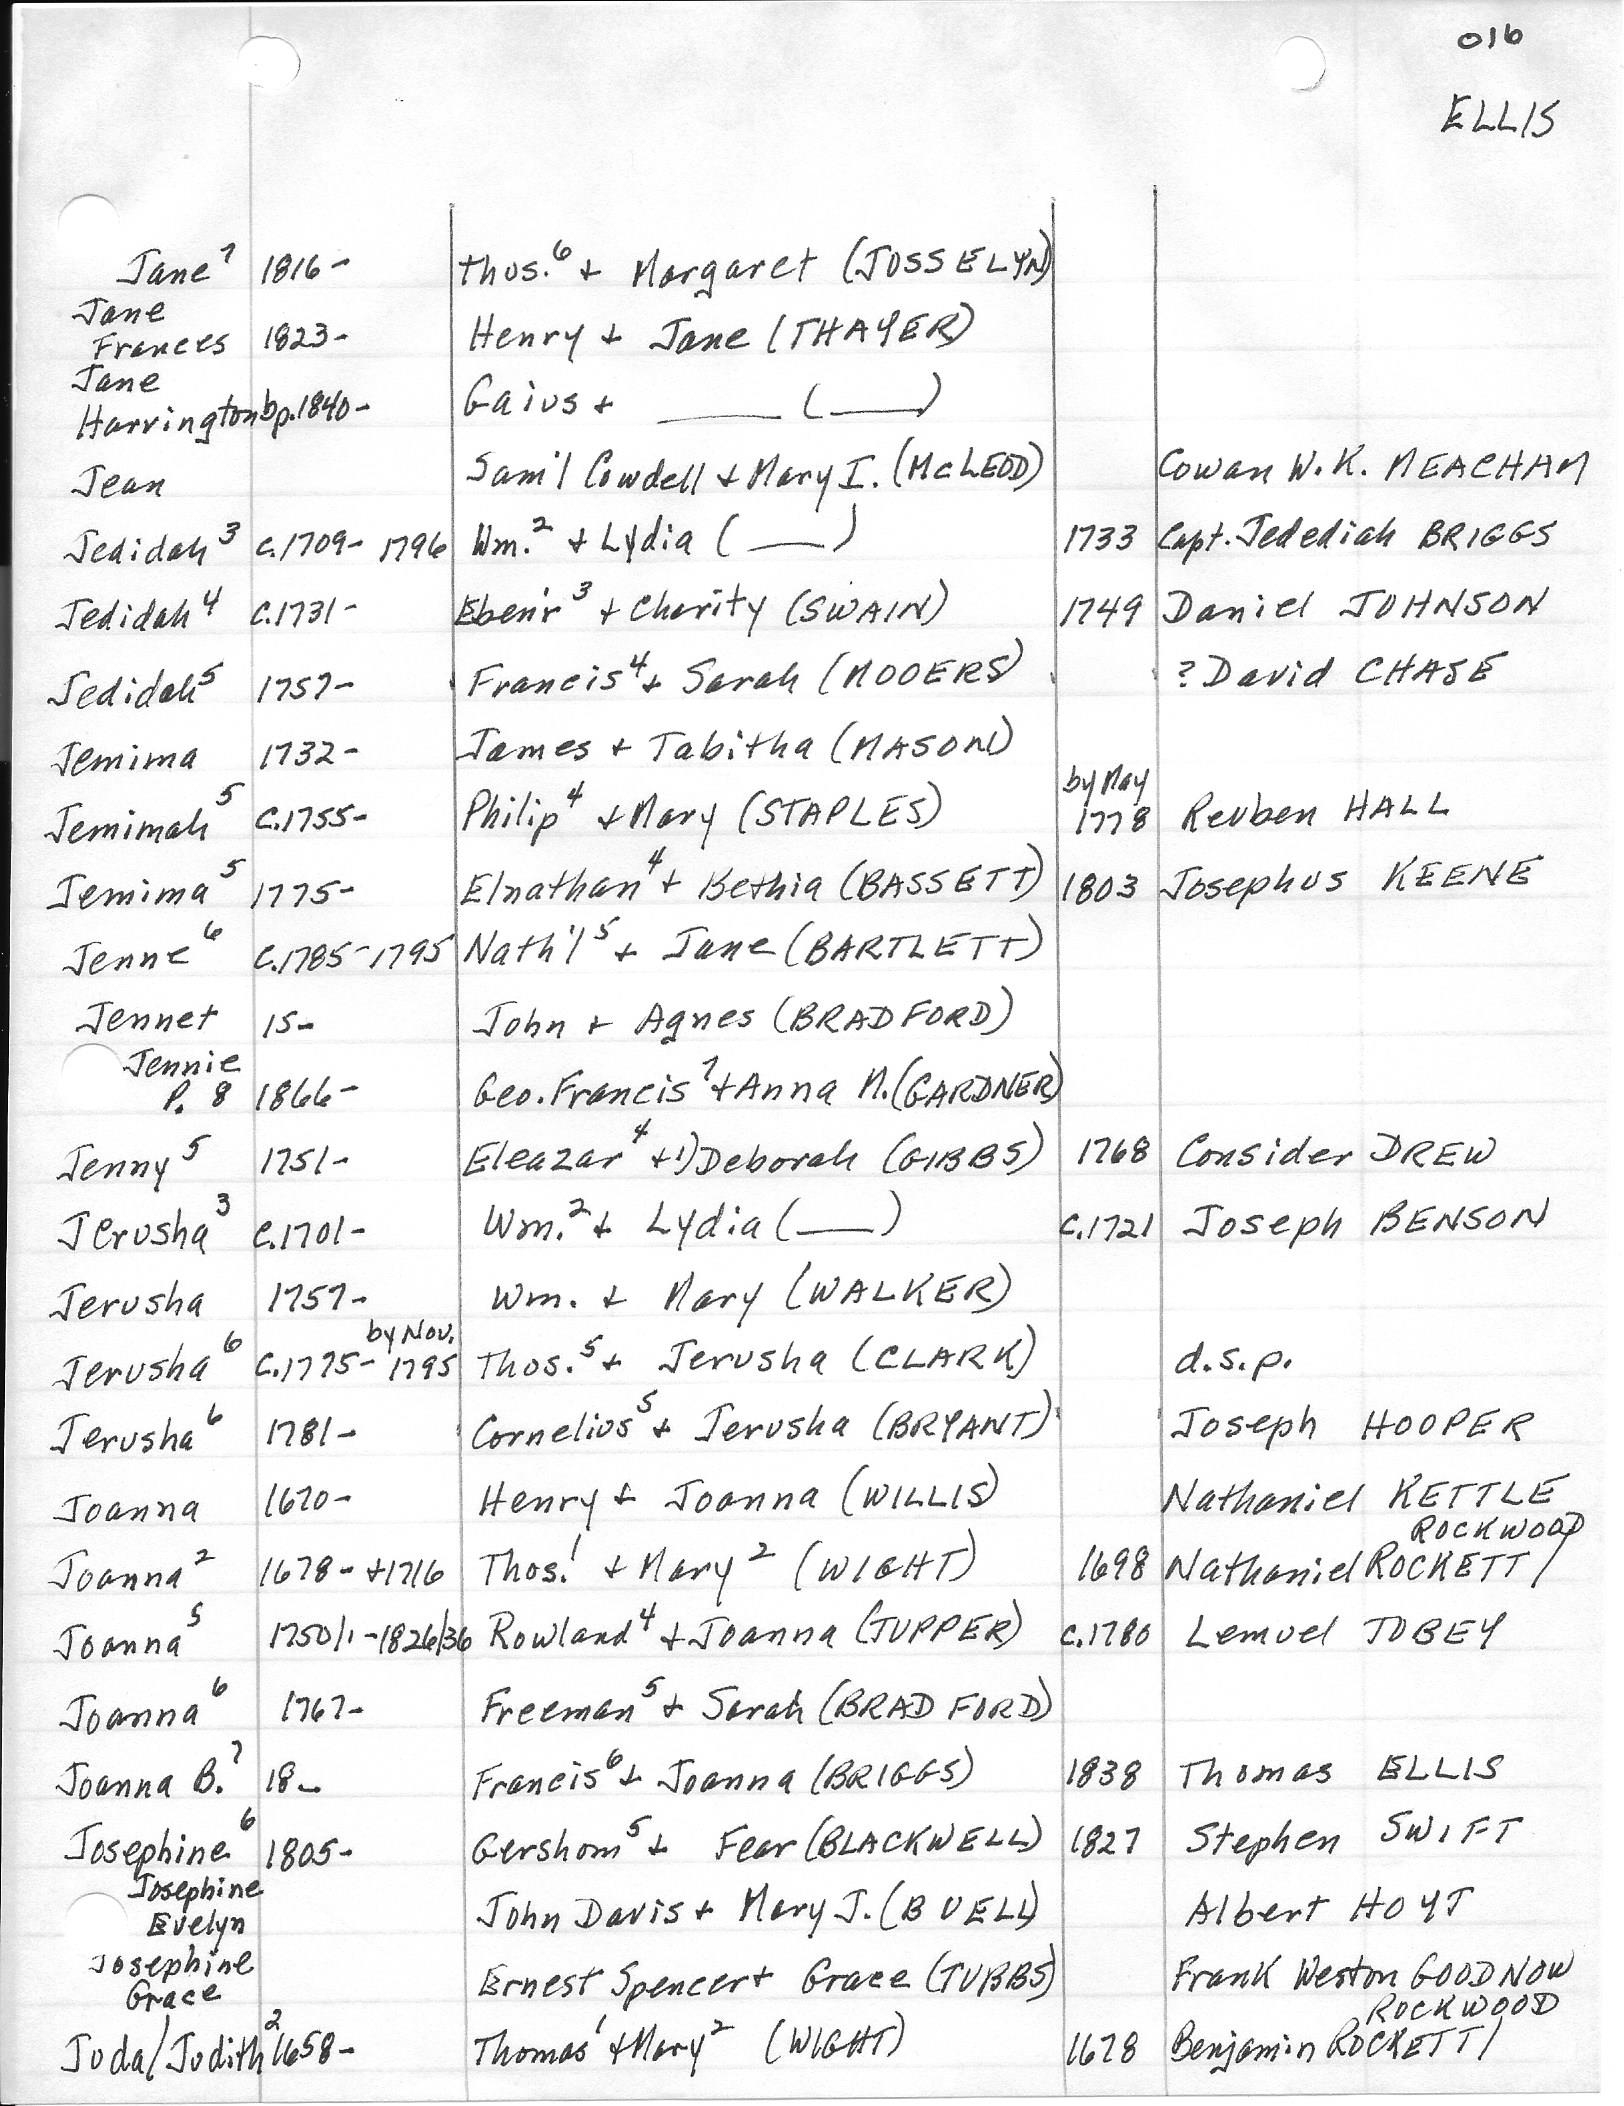 016
ELLIS
Jane⁷ 1816- Thos.⁶ + Margaret (JOSSELYN)
Jane
Frances 1823- Henry + Jane (THAYER)
Jane
Harrington bp.1840- Gaius + ____ (____)
Jean Sam'l Cowdell + Mary I. (McLEOD) Cowan W.K. MEACHAM
Jedidah³ c.1709- 1796 Wm.² + Lydia (____) 1733 Capt. Jedediah BRIGGS
Jedidah⁴ c.1731- Eben'r³ + Charity (SWAIN) 1749 Daniel JOHNSON
Jedidah⁵ 1757- Francis⁴ + Sarah (MOOERS) ? David CHASE
Jemima 1732- James + Tabitha (MASON)
by May
Jemimah⁵ c.1755- Philip⁴ + Mary (STAPLES) 1778 Reuben HALL
Jemima⁵ 1775- Elnathan⁴ + Bethia (BASSETT) 1803 Josephus KEENE
Jenne⁶ c.1785-1795 Nath'l⁵ + Jane (BARTLETT)
Jennet 15- John + Agnes (BRADFORD)
Jennie
P. 8 1866- Geo. Francis⁷ + Anna M. (GARDNER)
Jenny⁵ 1751- Eleazar⁴ + 1) Deborah (GIBBS) 1768 Consider DREW
Jerusha³ c.1701- Wm.² + Lydia (____) c.1721 Joseph BENSON
Jerusha 1757- Wm. + Mary (WALKER)
by Nov.
Jerusha⁶ c.1775- 1795 Thos.⁵ + Jerusha (CLARK) d.s.p.
Jerusha⁶ 1781- Cornelius⁵ + Jerusha (BRYANT) Joseph HOOPER
Joanna 1670- Henry + Joanna (WILLIS) Nathaniel KETTLE
ROCKWOOD
Joanna² 1678- +1716 Thos.¹ + Mary² (WIGHT) 1698 Nathaniel ROCKETT/
Joanna⁵ 1750/1-1826/36 Rowland⁴ + Joanna (TUPPER) c.1780 Lemuel TOBEY
Joanna⁶ 1767- Freeman⁵ + Sarah (BRADFORD)
Joanna B.⁷ 18- Francis⁶ + Joanna (BRIGGS) 1838 Thomas ELLIS
Josephine⁶ 1805- Gershom⁵ + Fear (BLACKWELL) 1827 Stephen SWIFT
Josephine
Evelyn John Davis + Mary J. (BUELL) Albert HOYT
Josephine
Grace Ernest Spencer + Grace (TUBBS) Frank Weston GOODNOW
ROCKWOOD
Juda/Judith² 1658- Thomas¹ + Mary² (WIGHT) 1678 Benjamin ROCKETT/